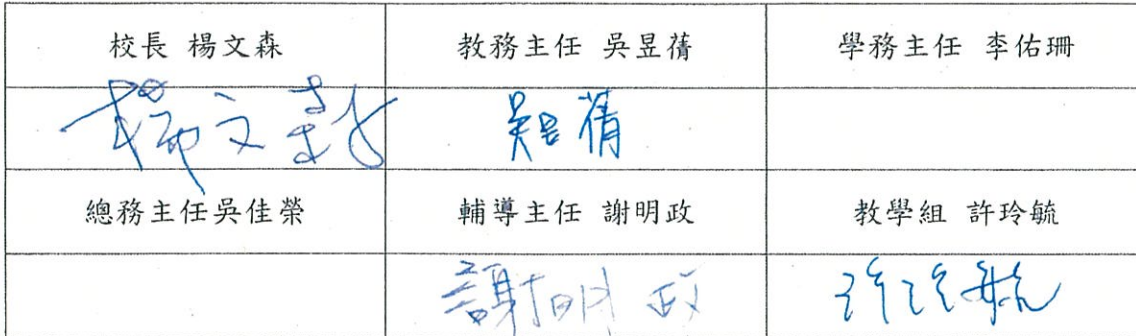 校長 楊文森 教務主任 吳昱蒨 學務主任 李佑珊
楊文森 吳昱蒨
總務主任吳佳榮 輔導主任 謝明政 教學組 許玲毓
謝明政 許玲毓